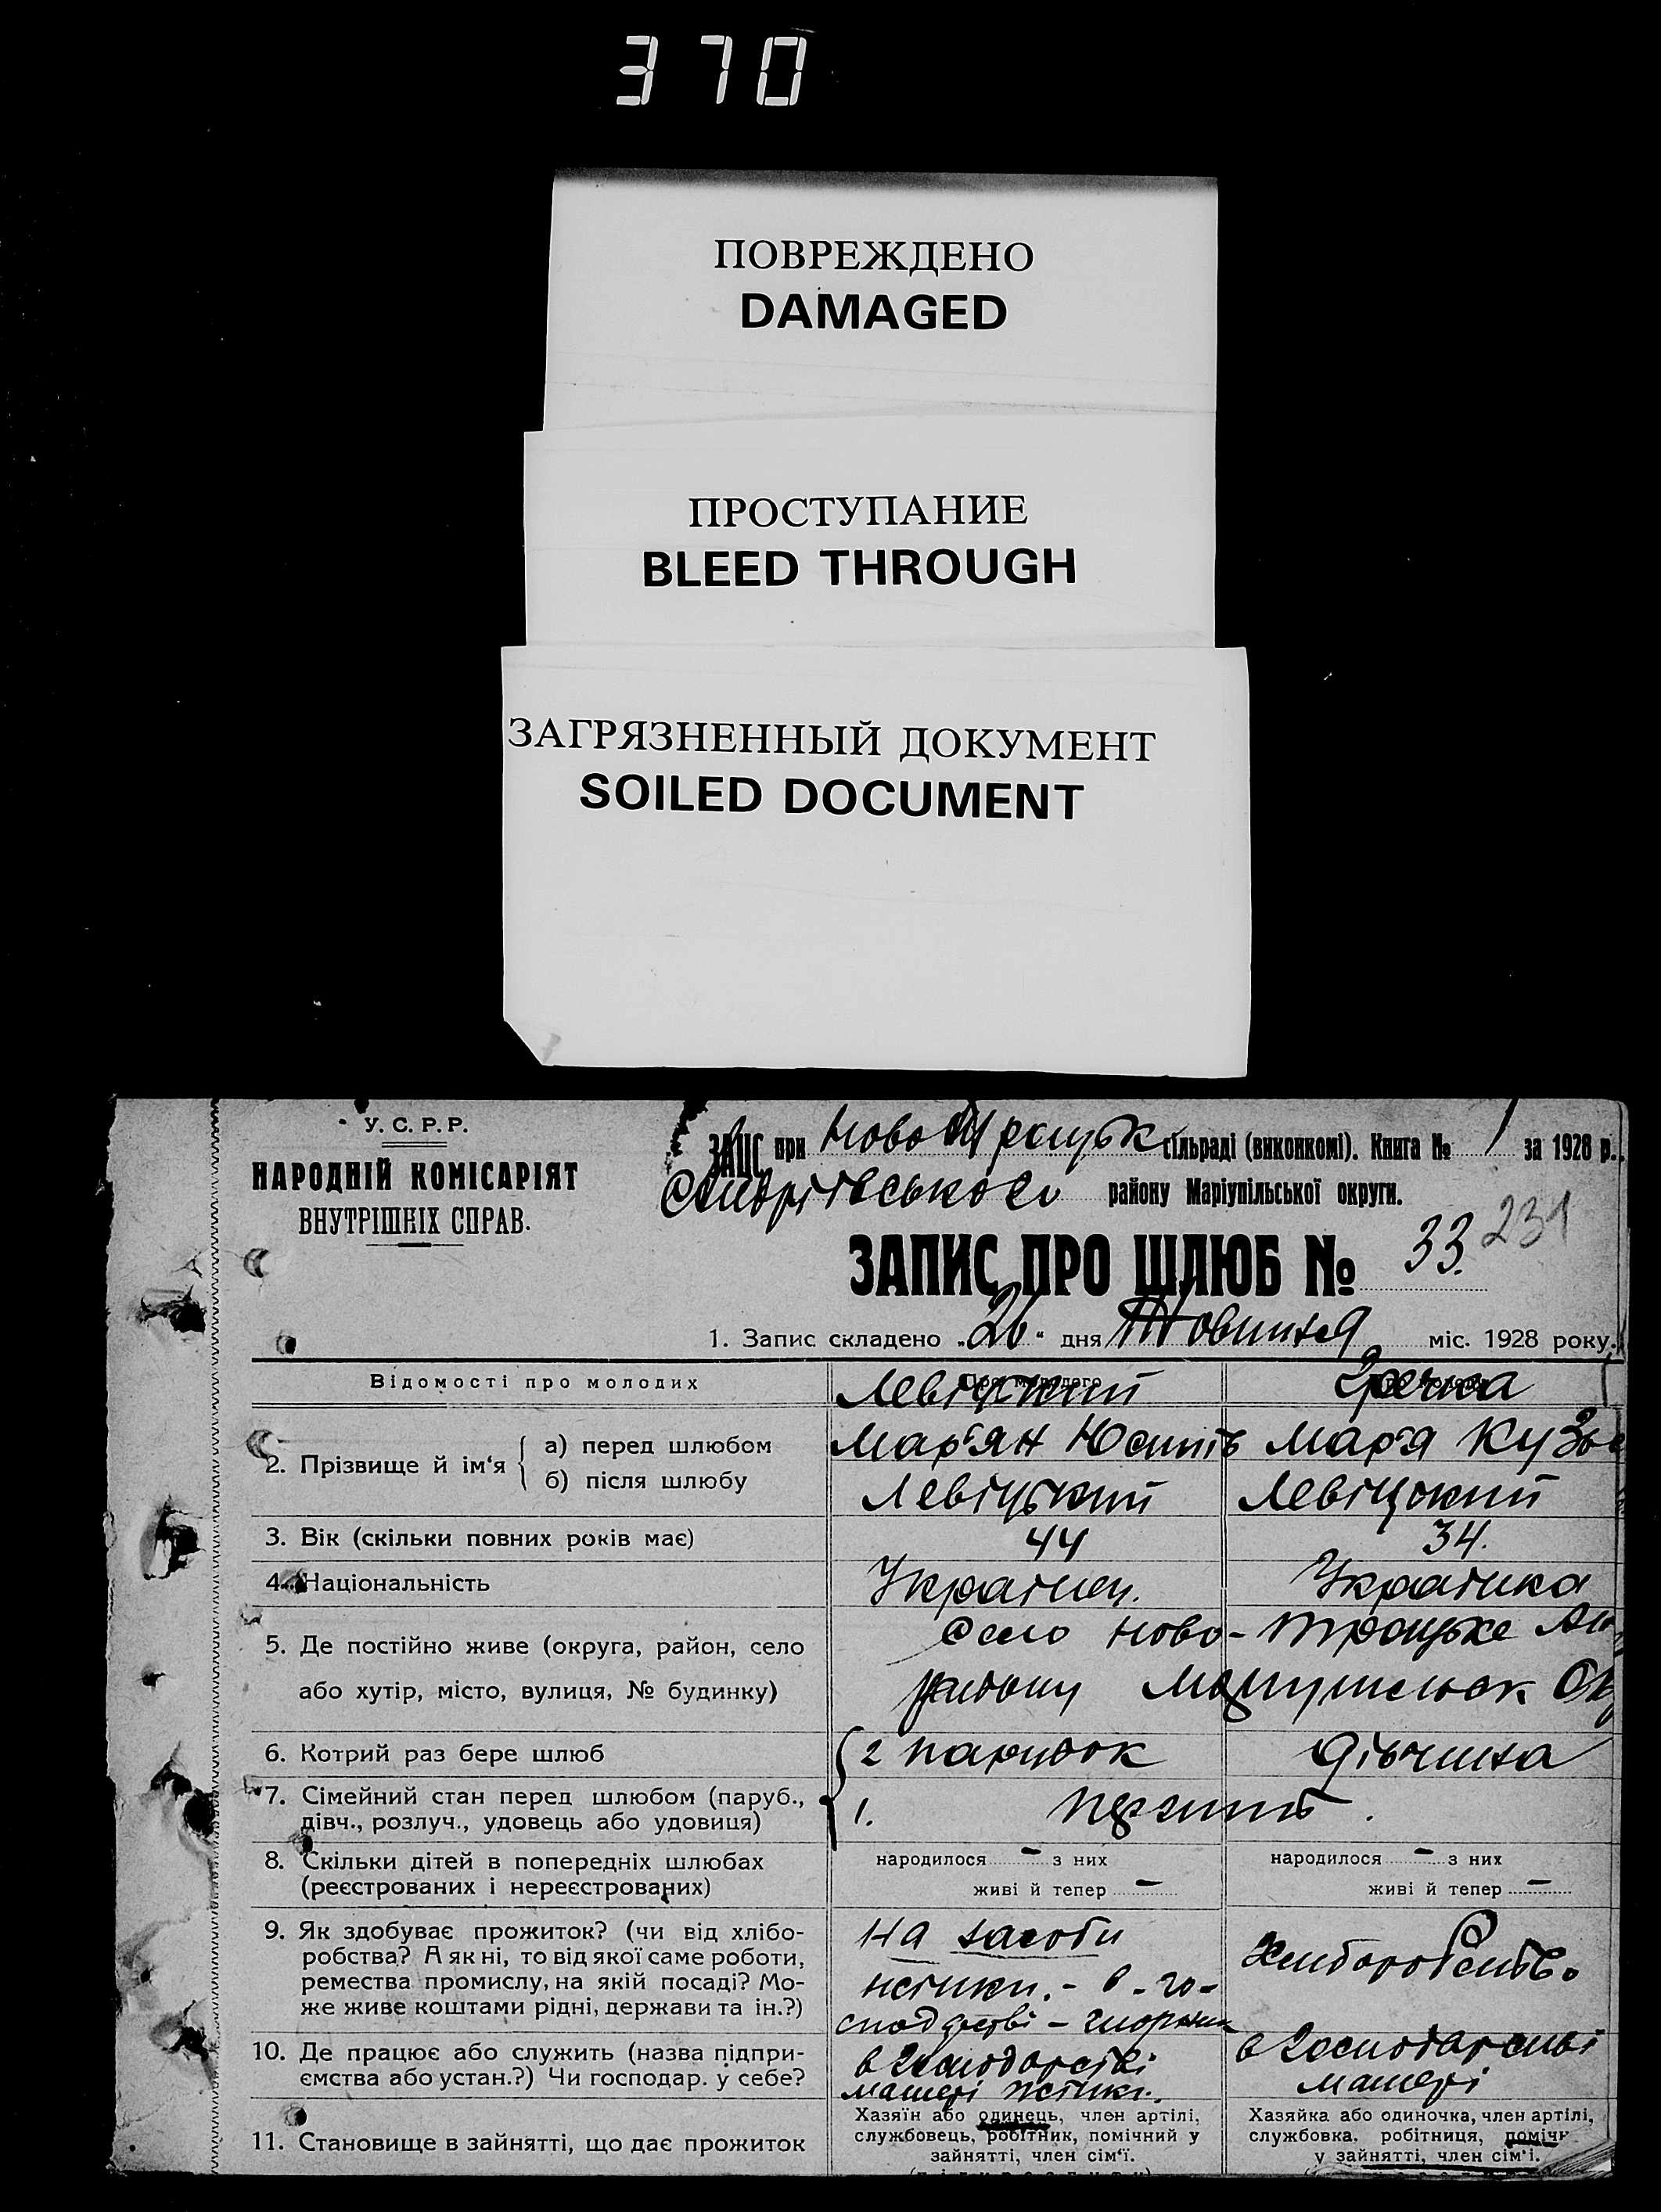 370
ПОВРЕЖДЕНО
DAMAGED
ПРОСТУПАНИЕ
BLEED THROUGH
ЗАГРЯЗНЕННЫЙ ДОКУМЕНТ
SOILED DOCUMENT
У. С. Р. Р.
НАРОДНІЙ КОМІСАРІЯТ
ВНУТРІШНІХ СПРАВ.
ЗАГС при Ново Троцьк сільраді (виконкомі). Книга № 1 за 1928 р.
району Маріупільської округи.
ЗАПИС ПРО ШЛЮБ № 33. 231
1. Запис складено „26“ дня Жовтня міс. 1928 року.
Відомості про молодих
Левіцький
Гречка
2. Прізвище й ім‘я
а) перед шлюбом
б) після шлюбу
Мар‘ян Юсипів
Мар‘я
Левіцький
Левіцький
3. Вік (скільки повних років має)
44
34.
4. Національність
Українец.
Українка
5. Де постійно живе (округа, район, село
або хутір, місто, вулиця, № будинку)
Село Ново-Троцьке
району
6. Котрий раз бере шлюб
2 парубок
дівчина
7. Сімейний стан перед шлюбом (паруб.,
дівч., розлуч., удовець або удовиця)
1.
8. Скільки дітей в попередніх шлюбах
(реєстрованих і нереєстрованих)
народилося - з них
живі й тепер -
народилося - з них
живі й тепер -
9. Як здобуває прожиток? (чи від хлібо-
робства? А як ні, то від якої саме роботи,
ремества промислу, на якій посаді? Мо-
же живе коштами рідні, держави та ін.?)
На засоби
жінки. - в - го-
сподарстві -
10. Де працює або служить (назва підпри-
ємства або устан.?) Чи господар. у себе?
в господарстві
матері жінки.
в господарстві
матері
11. Становище в зайнятті, що дає прожиток
Хазяїн або одинець, член артілі,
службовець, робітник, помічний у
зайнятті, член сім‘ї.
Хазяйка або одиночка, член артілі,
службовка, робітниця, помічн
у зайнятті, член сім‘ї.